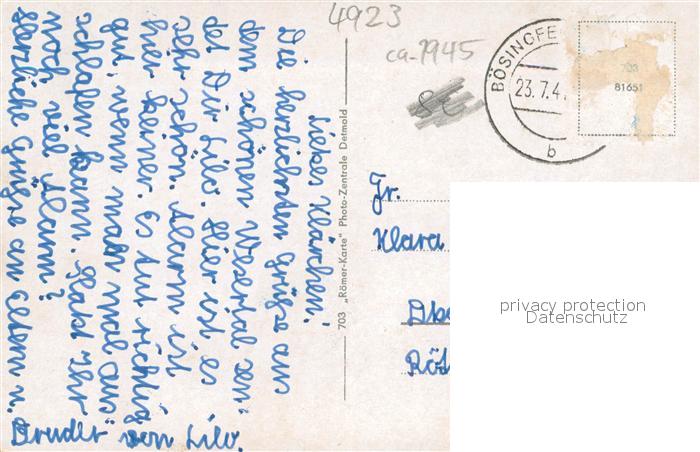 4923
ca. 1945
BÖSINGFE
23.7.4
b
703
81651
Liebes Klärchen!
Die herzlichsten Grüße aus
dem schönen Wesertal sen-
det Dir Lilo. Hier ist es
sehr schön. Alarm ist
hier keiner. Es tut richtig
gut, wenn man mal aus-
schlafen kann. Habt Ihr
noch viel Alarm?
Herzliche Grüße an Eltern u.
Bruder von Lilo.
703 „Römer-Karte" Photo-Zentrale Detmold
Fr.
Klara
Röt
privacy protection
Datenschutz